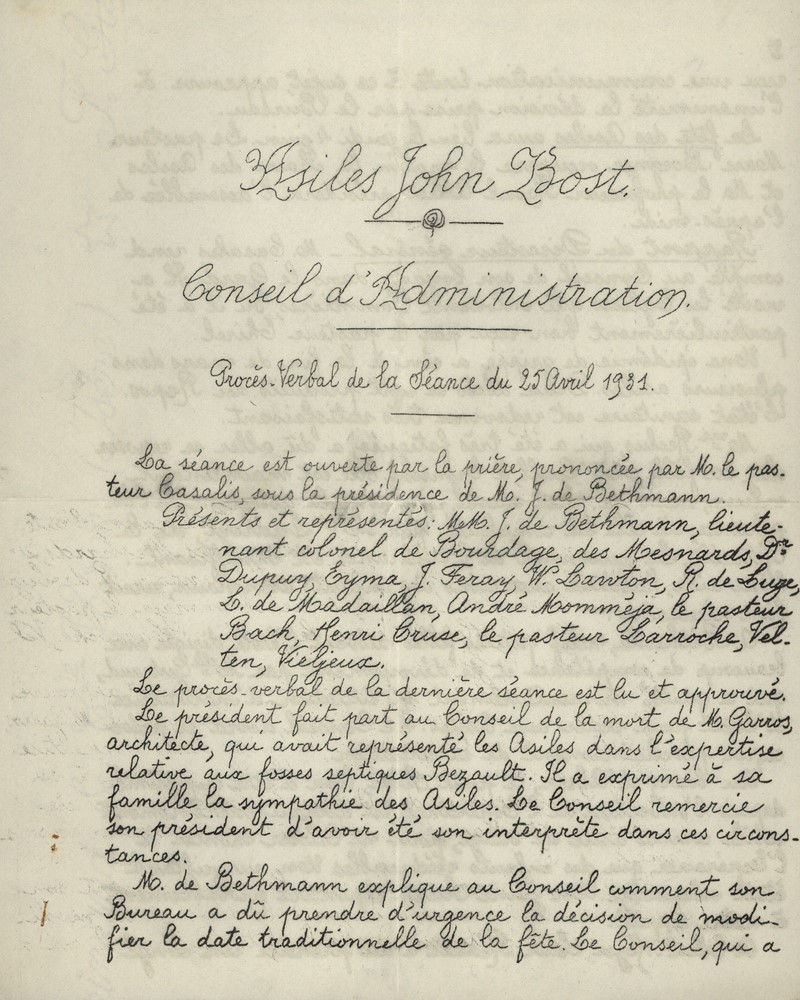 Asiles John Bost.
Conseil d'Administration.
Procès-Verbal de la Séance du 25 Avril 1931.
La séance est ouverte par la prière, prononcée par M. le pas-
teur Casalis, sous la présidence de M. J. de Bethmann.
Présents et représentés: MM. J. de Bethmann, lieute-
nant colonel de Bourdage, des Mesnards, Dr
Dupuy, Eyma, J. Feray, W. Lawton, R. de Luze,
L. de Madaillan, André Momméja, le pasteur
Bach, Henri Cruse, le pasteur Larroche, Vel-
ten, Vieljeux.
Le procès-verbal de la dernière séance est lu et approuvé.
Le président fait part au Conseil de la mort de M. Garros,
architecte, qui avait représenté les Asiles dans l'expertise
relative aux fosses septiques Bezault. Il a exprimé à sa
famille la sympathie des Asiles. Le Conseil remercie
son président d'avoir été son interprète dans ces circons-
tances.
M. de Bethmann explique au Conseil comment son
Bureau a dû prendre d'urgence la décision de modi-
fier la date traditionnelle de la fête. Le Conseil, qui a